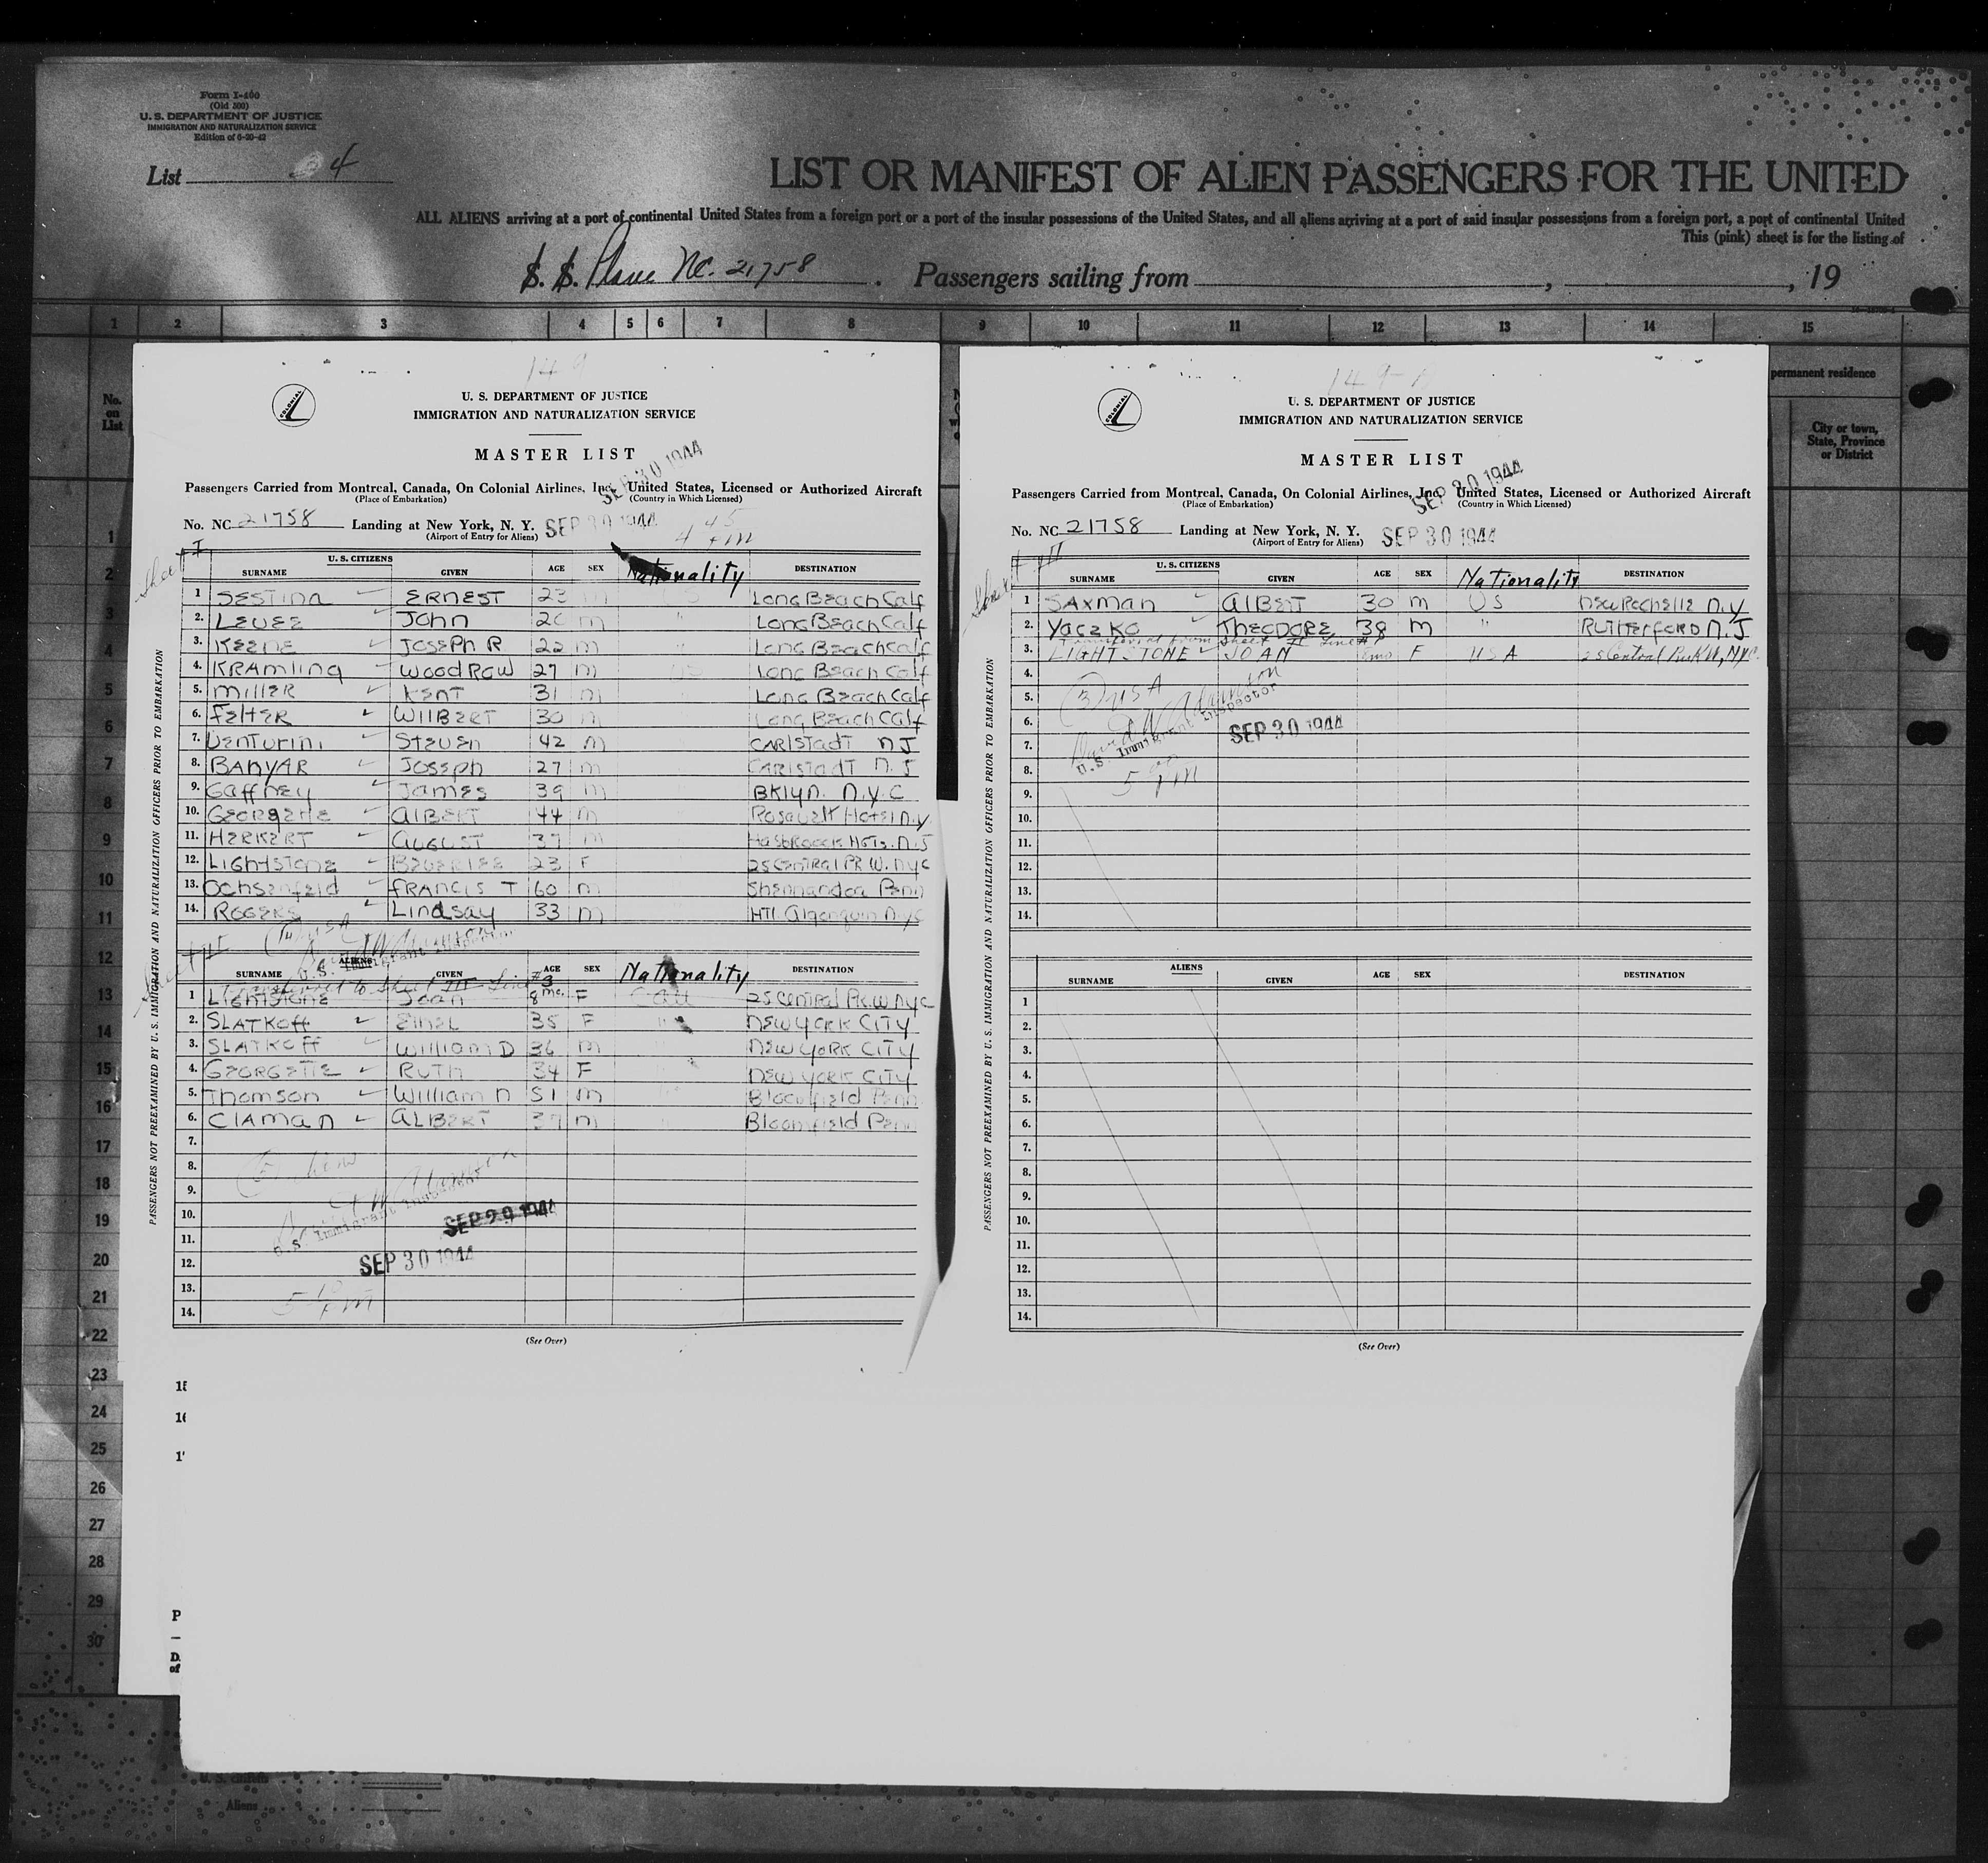 Form I-400
(Old 500)
U. S. DEPARTMENT OF JUSTICE
IMMIGRATION AND NATURALIZATION SERVICE
Edition of 6-20-42
List 4
LIST OR MANIFEST OF ALIEN PASSENGERS FOR THE UNITED
ALL ALIENS arriving at a port of continental United States from a foreign port or a port of the insular possessions of the United States, and all aliens arriving at a port of said insular possessions from a foreign port, a port of continental United
This (pink) sheet is for the listing of
S. S. Plane NC. 21758 . Passengers sailing from , , 19
1 2 3 4 5 6 7 8 9 10 11 12 13 14 15
No. on List
permanent residence
City or town, State, Province or District
149
COLONIAL
U. S. DEPARTMENT OF JUSTICE
IMMIGRATION AND NATURALIZATION SERVICE
MASTER LIST
SEP 30 1944
Passengers Carried from Montreal, Canada, On Colonial Airlines, Inc. United States, Licensed or Authorized Aircraft
(Place of Embarkation) (Country in Which Licensed)
No. NC 21758 Landing at New York, N. Y. SEP 30 1944 4 45 PM
(Airport of Entry for Aliens)
Sheet I
U. S. CITIZENS
SURNAME GIVEN AGE SEX Nationality DESTINATION
1 SESTINA ERNEST 23 m US Long Beach Calf
2. LEVEE John 20 m " Long Beach Calf
3. KEENE JOSEPH R 22 m " Long Beach Calf
4. KRAMLING WOODROW 27 m US Long Beach Calf
5. MILLER KENT 31 m Long Beach Calf
6. FELTER WILBERT 30 m Long Beach Calf
7. VENTURINI STEVEN 42 m CARLSTADT NJ
8. BANYAR JOSEPH 27 m CARLSTADT N.J
9. GAFFNEY JAMES 39 m BKlyn. N.Y.C
10. GEORGETTE ALBERT 44 m Rosevelt Hotel N.Y.
11. HERKERT AUGUST 37 m Hasbroock Hgts. N.J
12. LIGHTSTONE BEVERLEE 23 F 25 CENTRAL PK W. NYC
13. OCHSENFELD FRANCIS T 60 m Shennandoa Penn
14. ROGERS Lindsay 33 m Htl Algonquin NYC
(14) USA
U.S. Immigrant Inspector
Sheet II
ALIENS
SURNAME GIVEN AGE SEX Nationality DESTINATION
Transferred to Sheet III Line #3
1 LIGHTSTONE Joan 8 mo. F Can 25 Central Pk. W NYC
2. SLATKOFF ETHEL 35 F " NEW YORK CITY
3. SLATKOFF William D 36 m NEW YORK CITY
4. GEORGETTE RUTH 34 F NEW YORK CITY
5. THOMSON William D 51 m Bloomfield Penn
6. CLAMAN ALBERT 37 m Bloomfield Penn
7.
8.
9.
10.
11.
12.
13.
14.
U.S. Immigrant Inspector
SEP 29 1944
SEP 30 1944
5 10 PM
(See Over)
PASSENGERS NOT PREEXAMINED BY U. S. IMMIGRATION AND NATURALIZATION OFFICERS PRIOR TO EMBARKATION
149-A
COLONIAL
U. S. DEPARTMENT OF JUSTICE
IMMIGRATION AND NATURALIZATION SERVICE
MASTER LIST
SEP 30 1944
Passengers Carried from Montreal, Canada, On Colonial Airlines, Inc. United States, Licensed or Authorized Aircraft
(Place of Embarkation) (Country in Which Licensed)
No. NC 21758 Landing at New York, N. Y. SEP 30 1944
(Airport of Entry for Aliens)
Sheet III
U. S. CITIZENS
SURNAME GIVEN AGE SEX Nationality DESTINATION
1 SAXMAN ALBERT 30 m US New Rochelle N.Y
2. YACZKO THEODORE 38 m " RUTHERFORD N.J
Transferred from Sheet II Line #1
3. LIGHTSTONE JOAN 8 mo F USA 25 Central Park W, NYC.
4.
5.
6.
7.
8.
9.
10.
11.
12.
13.
14.
(3) USA
U.S. Immigrant Inspector
SEP 30 1944
5 PM
ALIENS
SURNAME GIVEN AGE SEX DESTINATION
1
2.
3.
4.
5.
6.
7.
8.
9.
10.
11.
12.
13.
14.
(See Over)
PASSENGERS NOT PREEXAMINED BY U. S. IMMIGRATION AND NATURALIZATION OFFICERS PRIOR TO EMBARKATION
1
2
3
4
5
6
7
8
9
10
11
12
13
14
15
16
17
18
19
20
21
22
23
24
25
26
27
28
29
30
U. S. citizens
Aliens